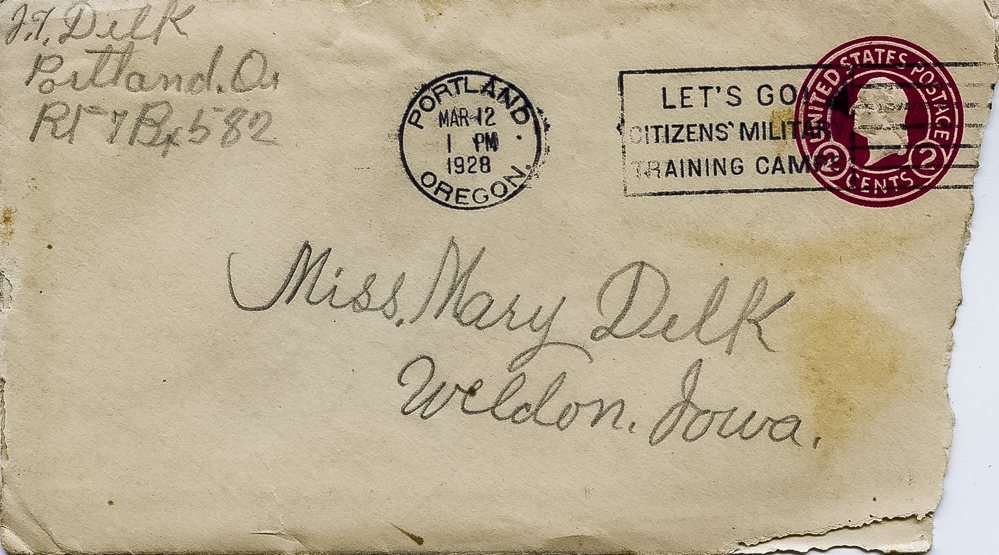 J.T. Delk
Portland. Or
Rt 7 Bx 582
PORTLAND.
MAR 12
1 PM
1928
OREGON.
LET'S GO!
CITIZENS' MILITAR
TRAINING CAMPS
UNITED STATES POSTAGE
2 CENTS 2
Miss. Mary Delk
Weldon. Iowa.